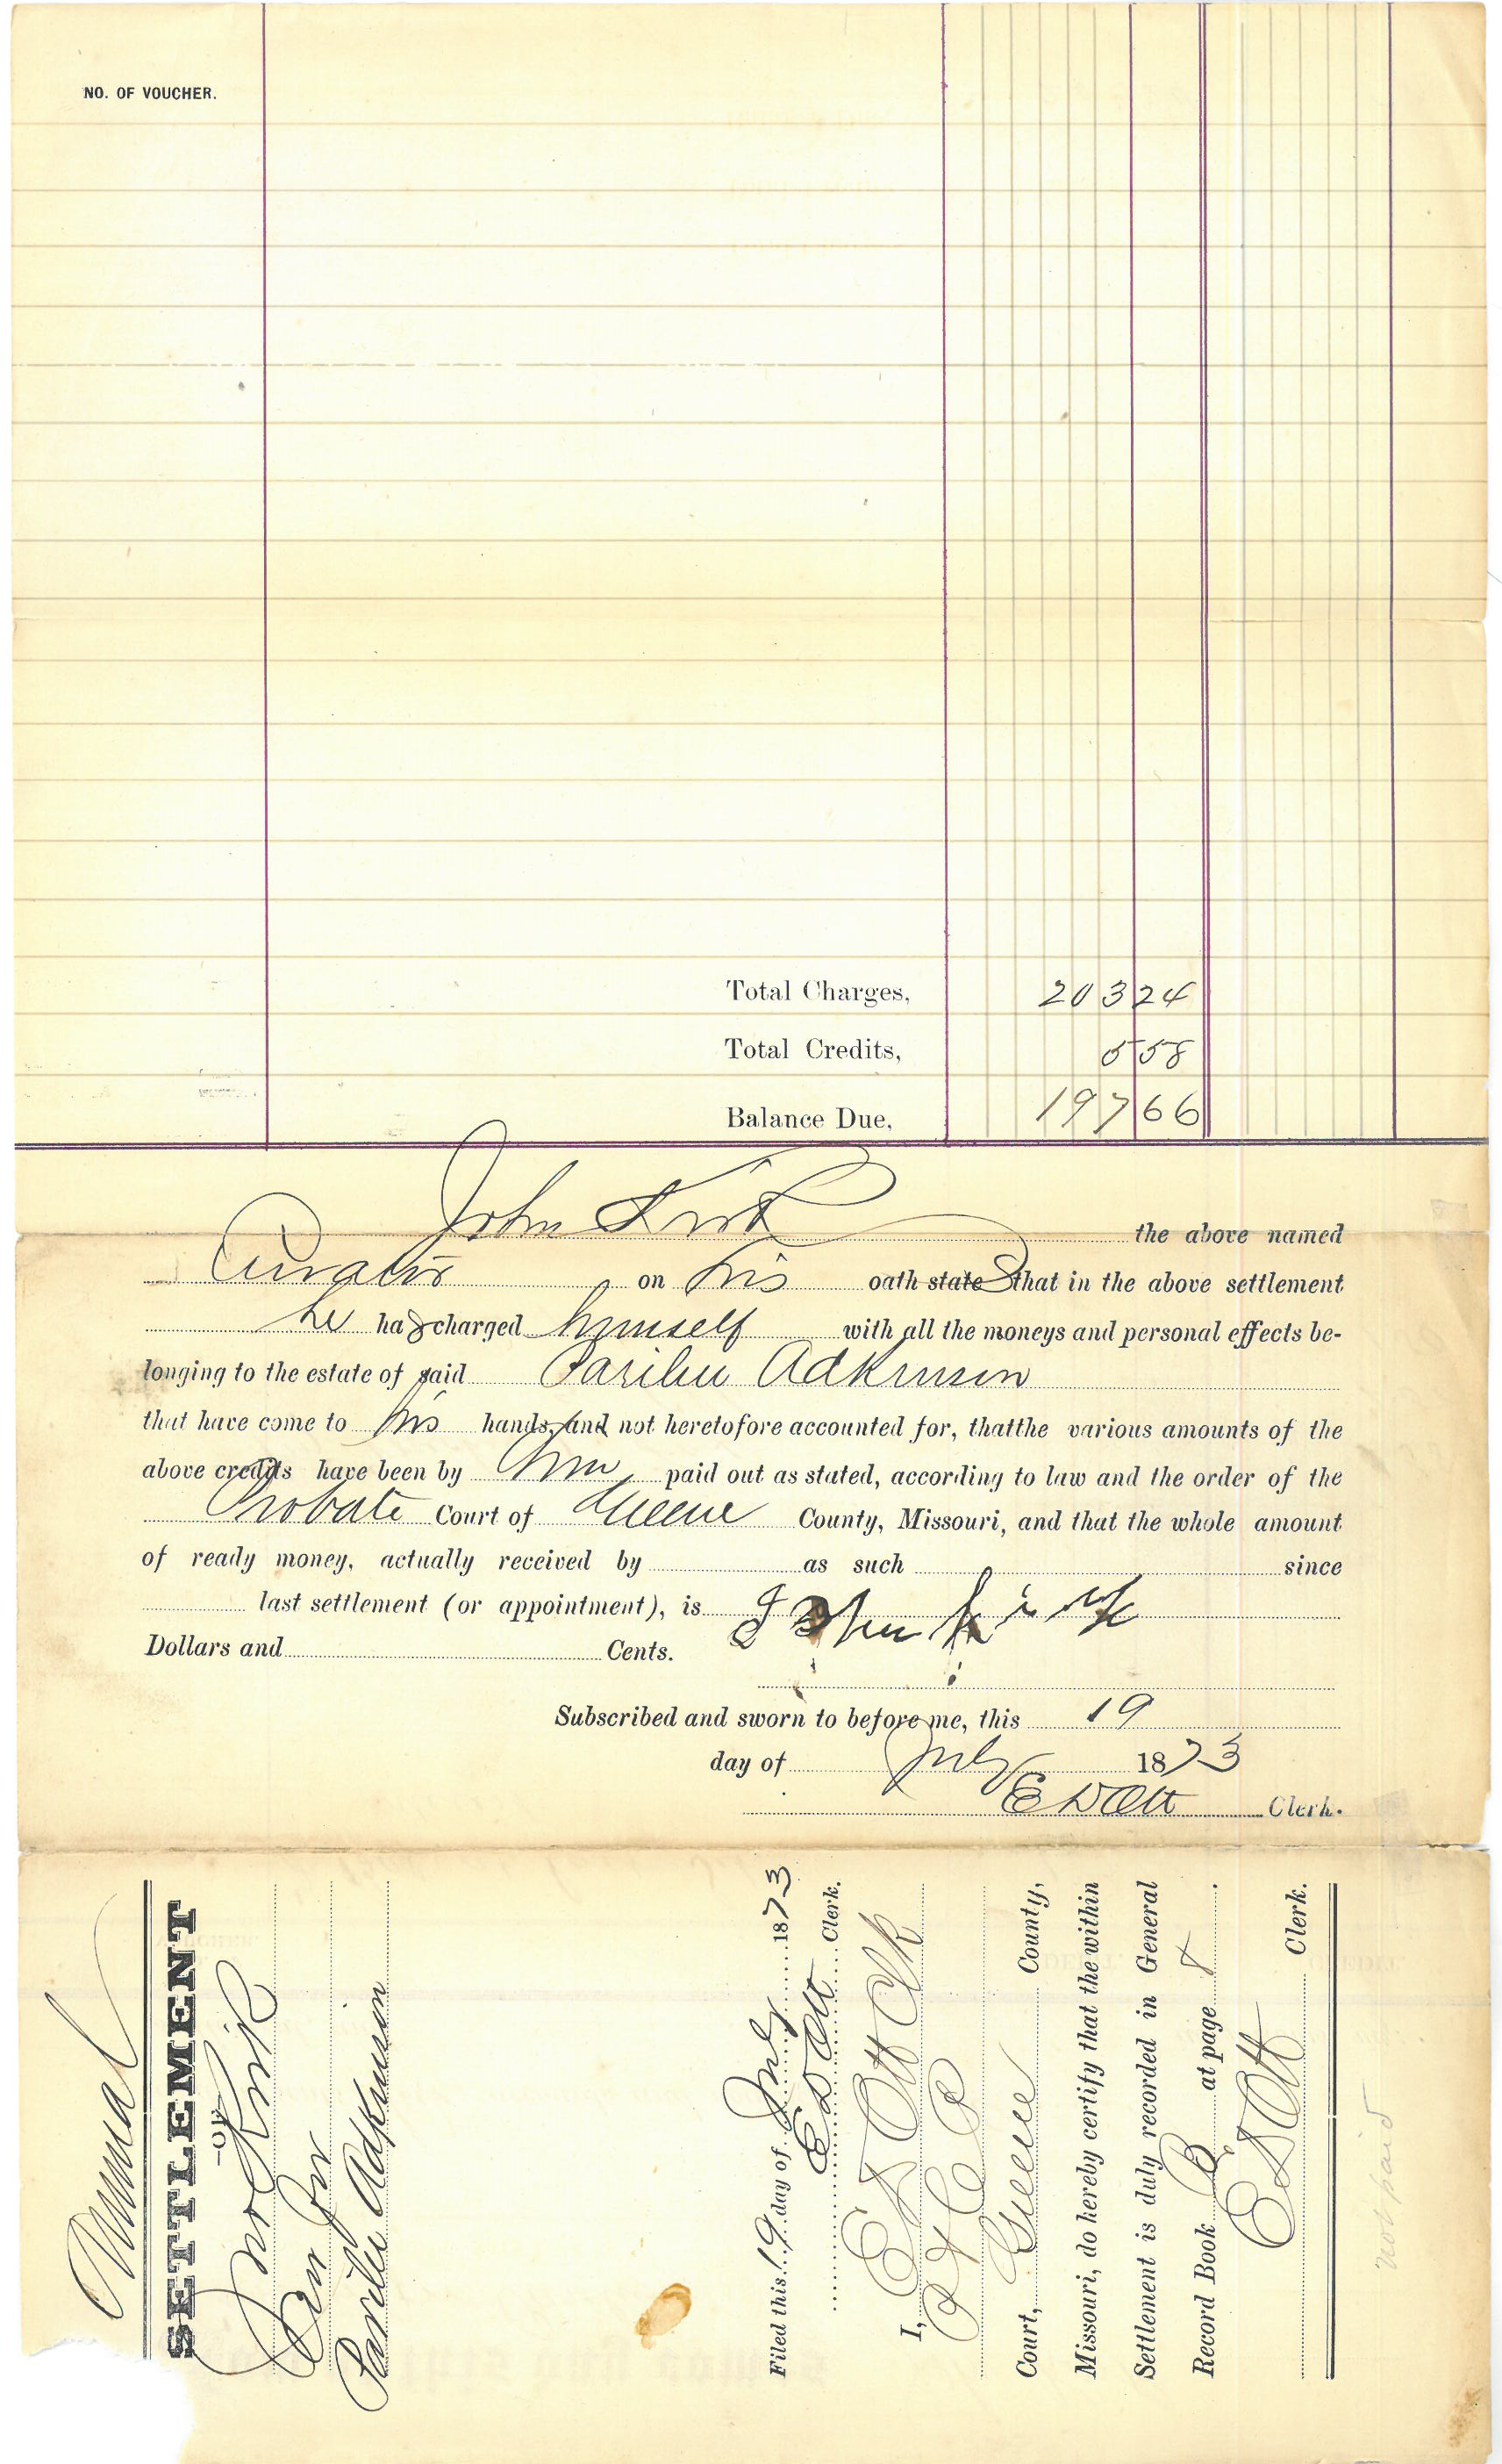 NO. OF VOUCHER.
Total Charges, 203 24
Total Credits, 5 58
Balance Due, 197 66
John Kirk the above named
Curator on his oath states that in the above settlement
he has charged himself with all the moneys and personal effects be-
longing to the estate of said Parilee Adkinson
that have come to his hands, and not heretofore accounted for, thatthe various amounts of the
above credits have been by him paid out as stated, according to law and the order of the
Probate Court of Greene County, Missouri, and that the whole amount
of ready money, actually received by as such since
last settlement (or appointment), is John Kirk
Dollars and Cents.
Subscribed and sworn to before me, this 19
day of July 1873
E D Ott Clerk.
Annual
SETTLEMENT
—OF—
Jno Kirk
Cur for
Parilee Adkinson
Filed this 19 day of July 1873
E D Ott Clerk.
I, E D Ott Clk
Court, Greene County,
Missouri, do hereby certify that the within
Settlement is duly recorded in General
Record Book B at page 8.
E D Ott Clerk.
not paid